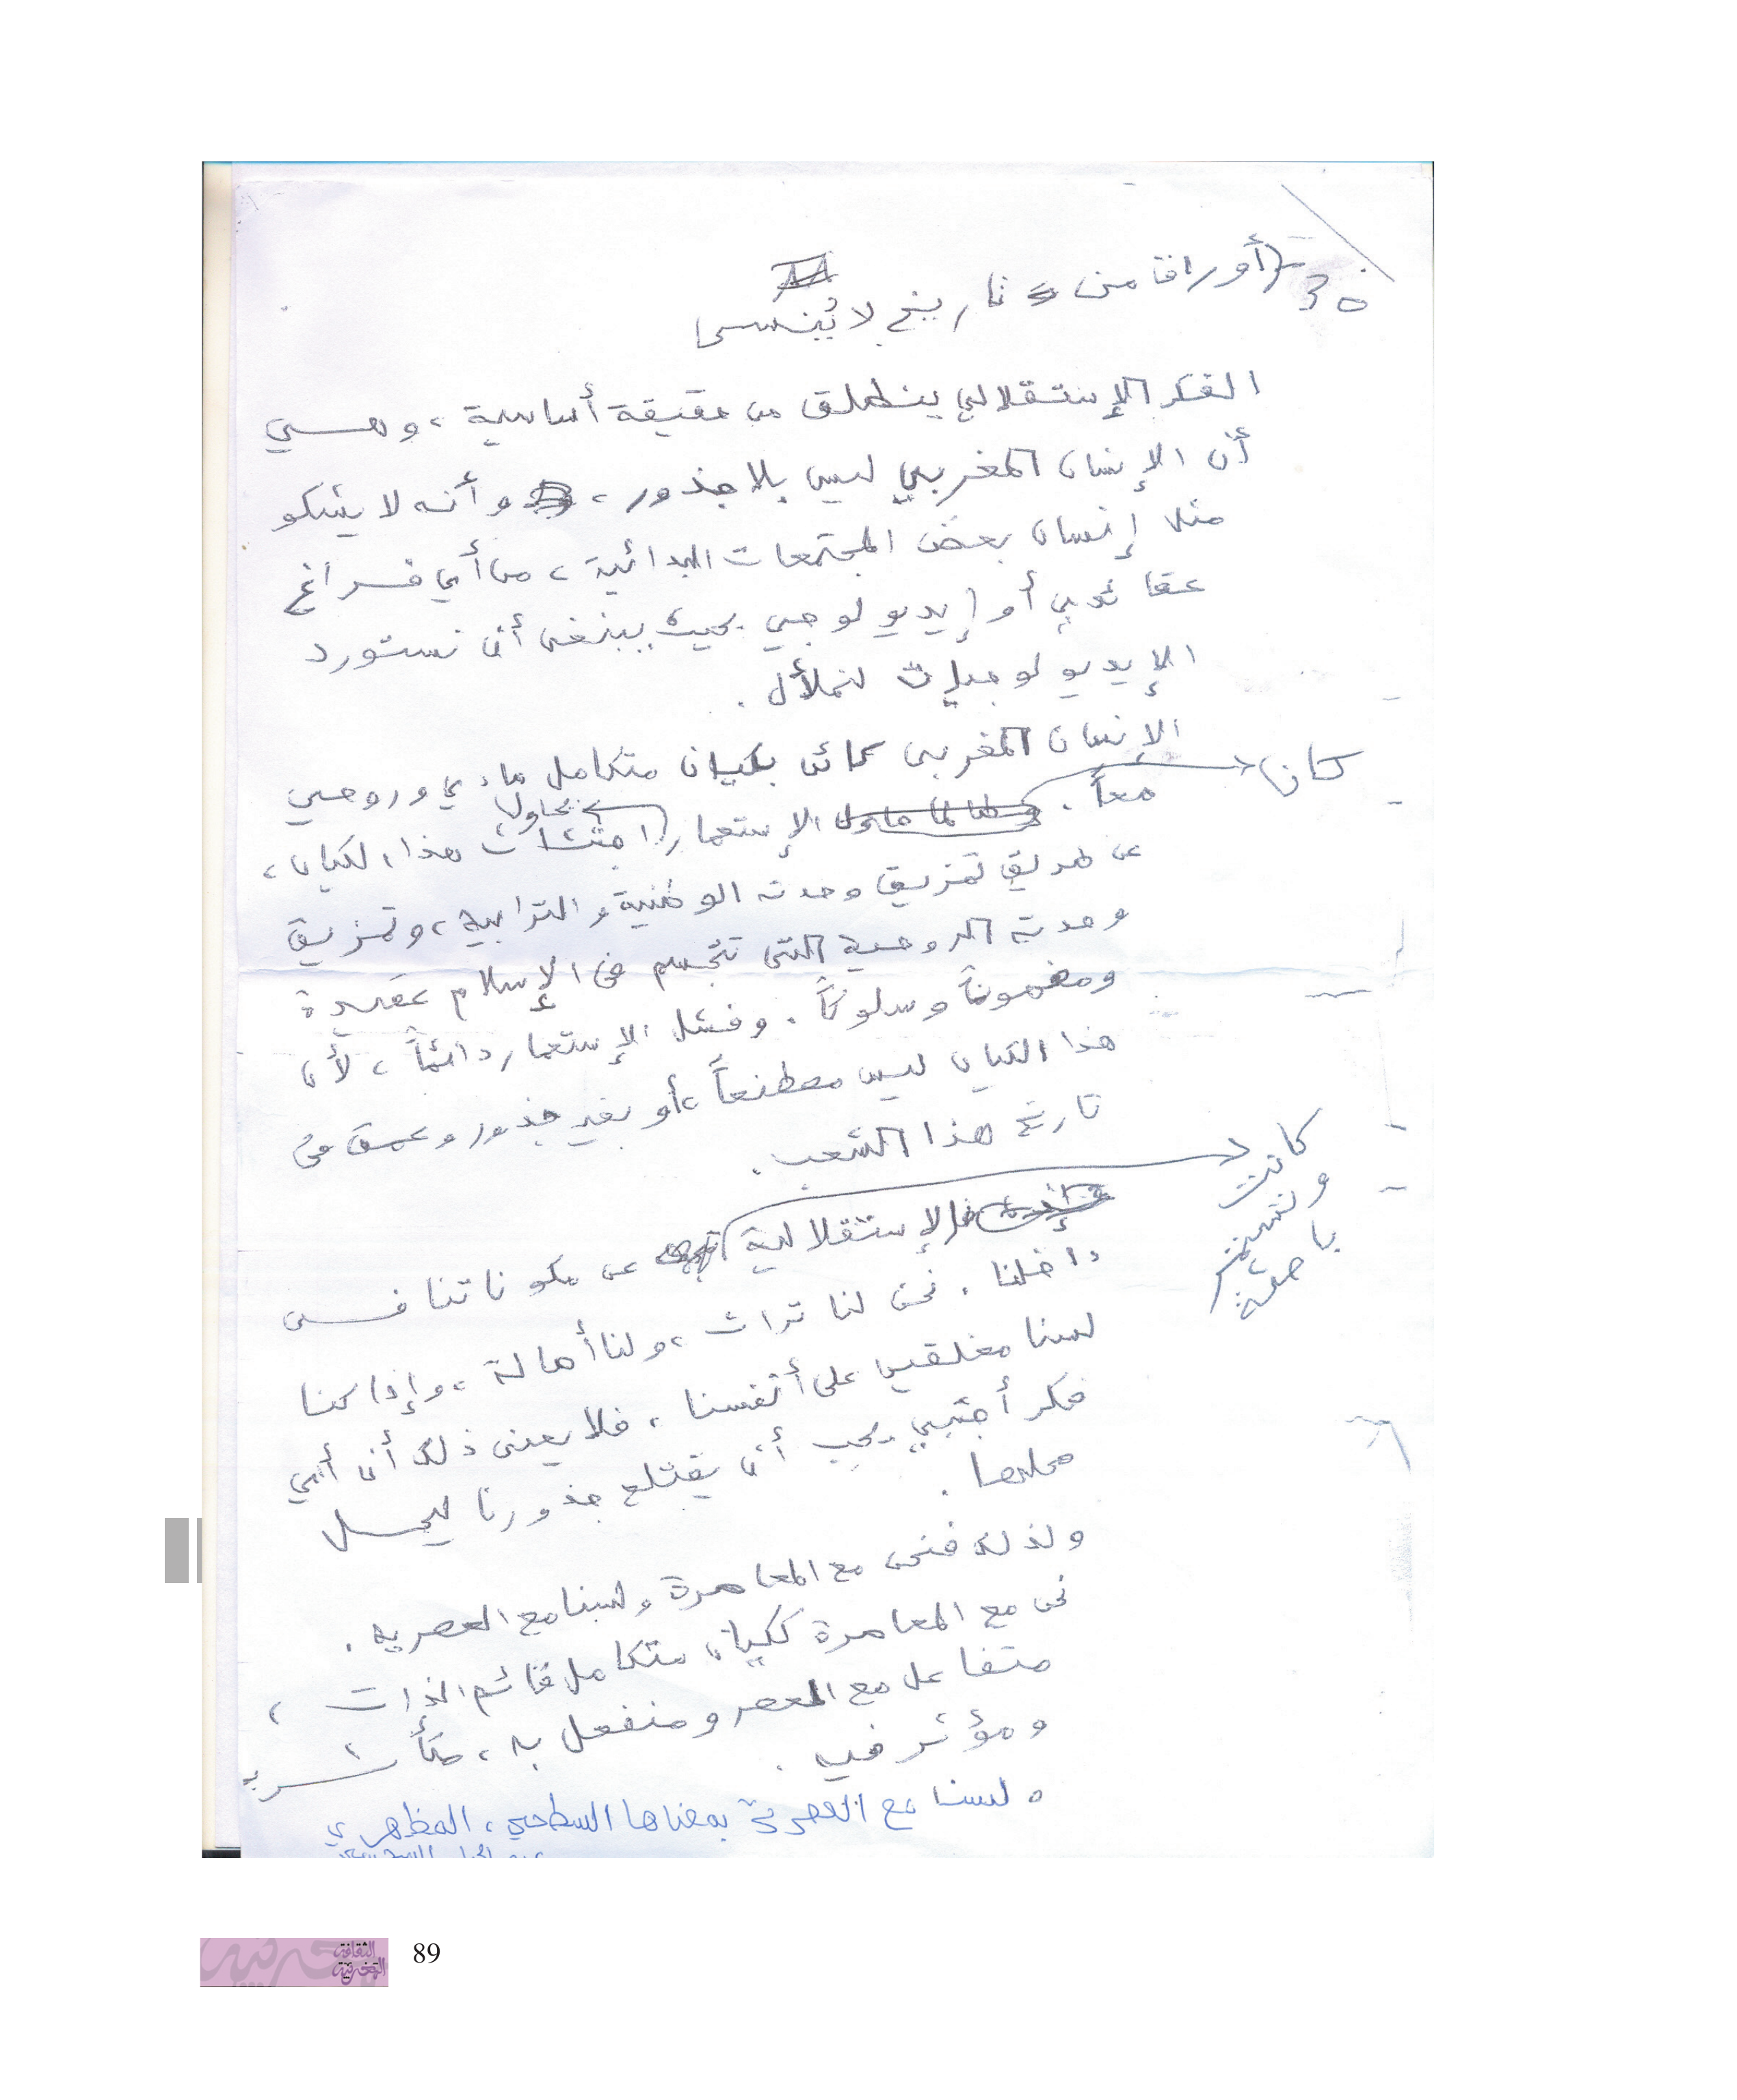 أوراق من تاريخ لا يُنسى
الفكر الإستقلالي ينطلق من حقيقة أساسية، وهي
أن الإنسان المغربي ليس بلا جذور، وأنه لا يشكو
مثل إنسان بعض المجتمعات البدائية، من أي فراغ
عقائدي أو إيديولوجي بحيث ينبغى أن نستورد
الإيديولوجيات لنملأه.
الإنسان المغربى كائن بكيان متكامل مادي وروحي
كان
معاً. الإستعمار يحاول اجتثاث هذا الكيان،
عن طريق تمزيق وحدته الوطنية والترابية، وتمزيق
وحدته الروحية التى تتجسم فى الإسلام عقيدة
ومضموناً وسلوكاً. وفشل الإستعمار دائماً، لأن
هذا الكيان ليس مصطنعاً، أو بغير جذور وعمق فى
تاريخ هذا الشعب.
كانت
وتستمر
باحثة
فالإستقلالية عن مكوناتنا فى
داخلنا. نحن لنا تراث، ولنا أصالة، وإذا كنا
لسنا مغلقين على أنفسنا، فلا يعنى ذلك أن أي
فكر أجنبي يجب أن يقتلع جذورنا ليحل
محلها.
ولذلك فنحن مع المعاصرة ولسنا مع العصرية.
نحن مع المعاصرة ككيان متكامل قائم الذات،
متفاعل مع العصر ومنفعل به، متأثر به
ومؤثر فيه.
ولسنا مع العصرية بمعناها السطحي، المظهري
الثقافة
المغربية
89